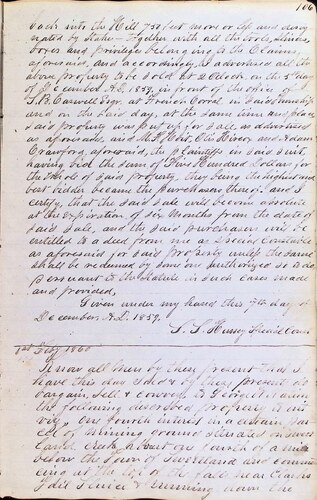 106
back into the Hill 750 feet more or less and desig
nated by Stakes - Together with all the tools, Sluices,
boxes and privileges belonging to the Claims
aforesaid, and accordingly I advertised all the
above property to be sold at 2 O'clock, on the 5th day
of December A.D. 1859, in front of the office of
T. B. Carswell Esqr. at French Corral in Said Township
and on the Said day, at the same time and place,
Said property was put up for sale, as advertised
as aforesaid, and and
Crawford, aforesaid, the plaintiffs in said suit,
having bid the sum of Five Hundred Dollars for
the whole of said property, they being the highest and
best bidder became the purchasers thereof. and I
certify, that the said sale will become absolute
at the expiration of six Months from the date of
said sale, and the said purchasers will be
entitled to a deed from me as Special Constable
as aforesaid for said Property unless the same
shall be redeemed by some one authorized so to do
persuant to the Statute in such cases made
and provided,
Given under my hand this 7th day of
December A.D. 1859.
S. S. Hussey Special Const
1st Feby 1860
Know all Men by these present that I
have this day sold & by these present do
bargain, Sell & convey to George
the following described property to wit
viz, One fourth interest in a certain par
cel of Mining Ground situated on Sweet
land Creek about one fourth of a mile
below the Town of Sweetland and commen
cing at the top of the falls near
Gold Flume & running down the